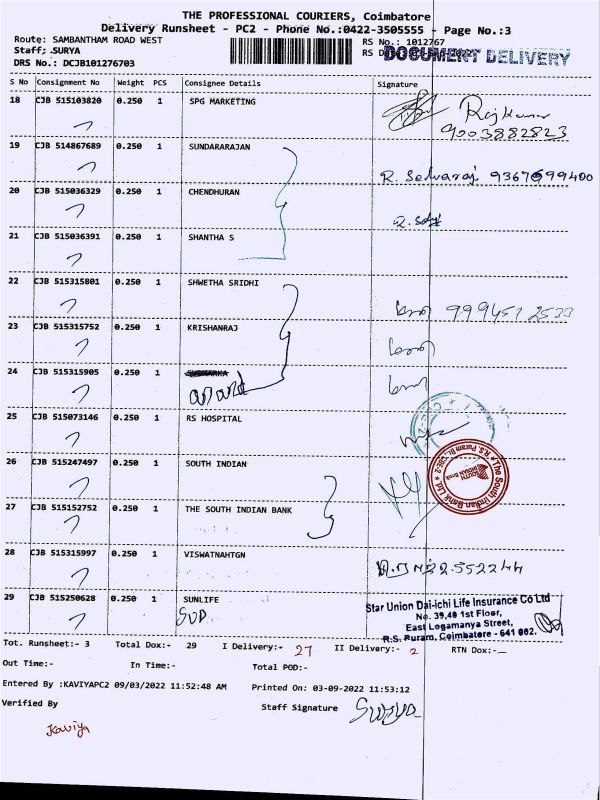 THE PROFESSIONAL COURIERS, Coimbatore
Delivery Runsheet - PC2 - Phone No.:0422-3505555 - Page No.:3
Route: SAMBANTHAM ROAD WEST
RS No.: 1012767
Staff; .SURYA
RS D
DOCUMENT DELIVERY
DRS No.: DCJB101276703
S No Consignment No Weight PCS Consignee Details Signature
18 CJB 515103820 0.250 1 SPG MARKETING Rajkumar
9003882823
19 CJB 514867689 0.250 1 SUNDARARAJAN
R. Selvaraj 9367699400
20 CJB 515036329 0.250 1 CHENDHURAN
21 CJB 515036391 0.250 1 SHANTHA S
22 CJB 515315801 0.250 1 SHWETHA SRIDHI
23 CJB 515315752 0.250 1 KRISHANRAJ
24 CJB 515315905 0.250 1
25 CJB 515073146 0.250 1 RS HOSPITAL
26 CJB 515247497 0.250 1 SOUTH INDIAN
The South Indian Bank Ltd.
SOUTH INDIAN Bank
27 CJB 515152752 0.250 1 THE SOUTH INDIAN BANK
28 CJB 515315997 0.250 1 VISWATNAHTGN
29 CJB 515250628 0.250 1 SUNLIFE
Star Union Dai-ichi Life Insurance Co Ltd
No. 39,40 1st Floor,
East Logamanya Street,
R.S. Puram, Coimbatore - 641 002.
Tot. Runsheet:- 3 Total Dox:- 29 I Delivery:- 27 II Delivery:- 2 RTN Dox:-
Out Time:- In Time:- Total POD:-
Entered By :KAVIYAPC2 09/03/2022 11:52:48 AM Printed On: 03-09-2022 11:53:12
Verified By Staff Signature Surya
Kaviya